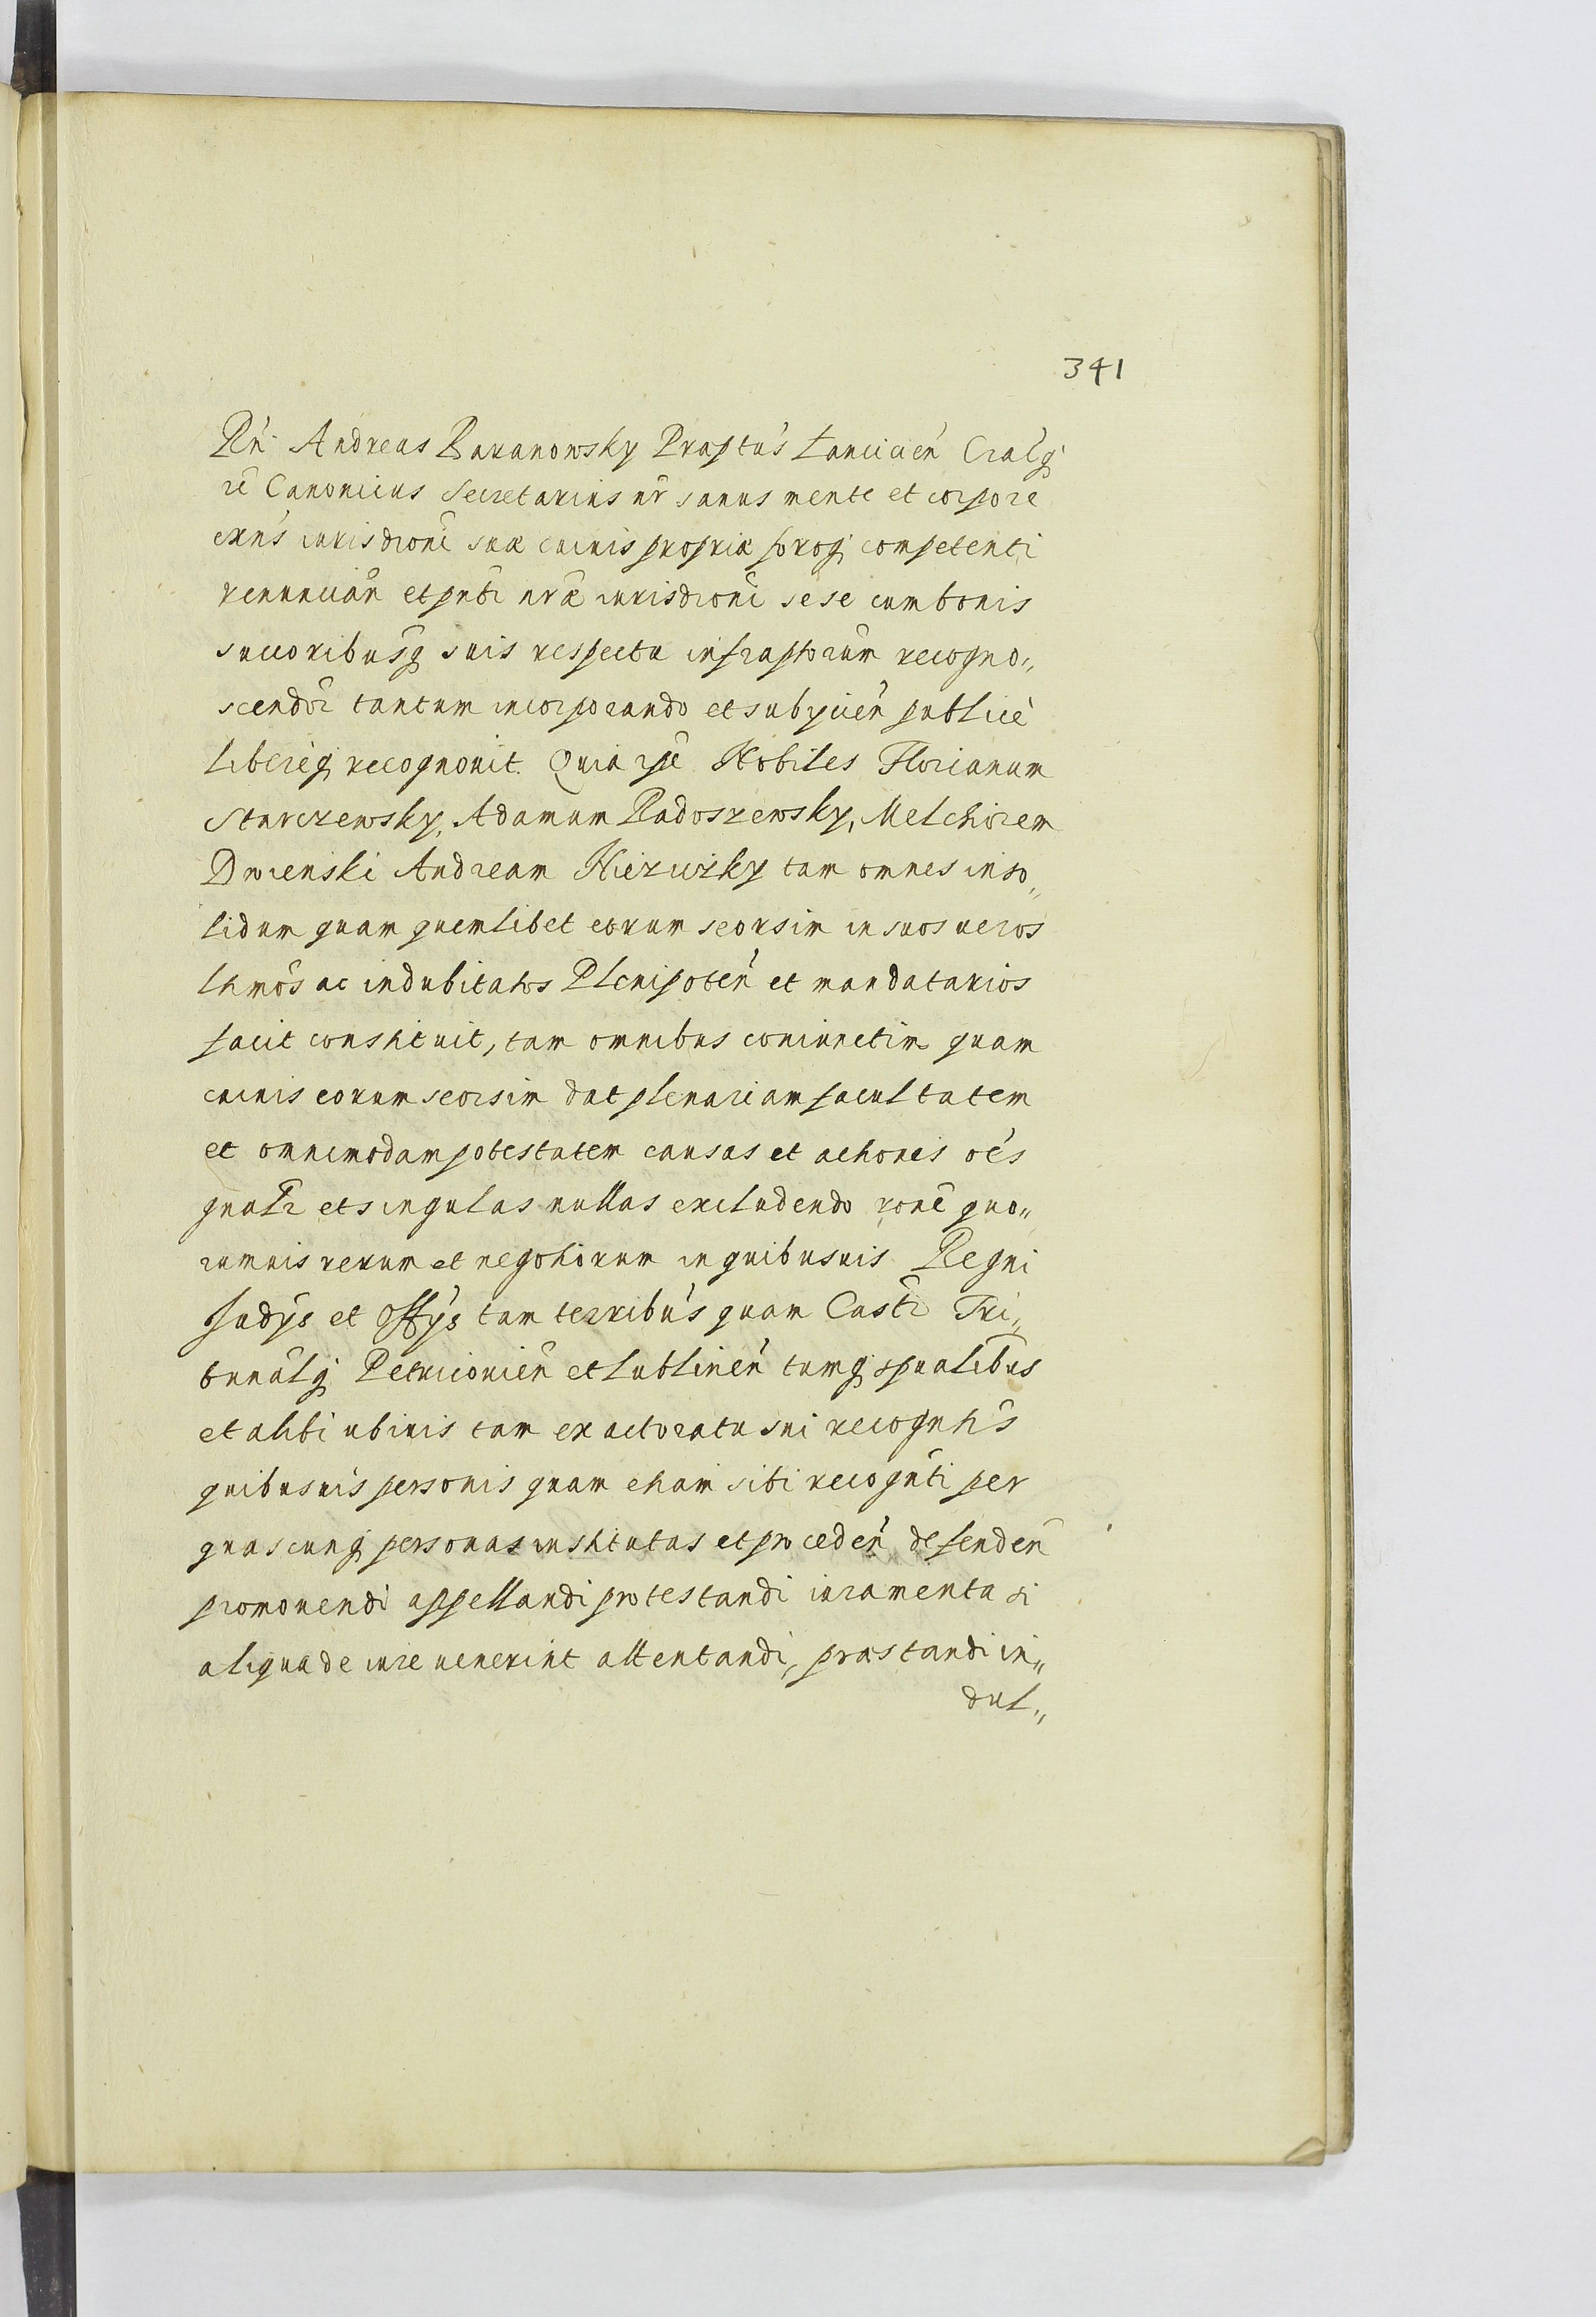 341
Rn̄. Andreas Baranowsky Praptūs Lancicień Cralq́
rē Canonicus Secretarius nr̄ sanus mente et corpore
exn̄s iurisdiōni suæ cuiuis propriæ foroq́ competenti
renuncian̄ et pn̄ti nr̄æ iurisdiōni sese cum bonis
succoribusq́ suis respectu infraptorum recogno„
scendor̄ tantum incorporando et subijcien̄ publicè
libereq́ recognouit. Quia ipse Nobiles Florianum
Starczewsky, Adamum Radoszewsky, Melchiorem
Drwenski Andream Niezwizky tam omnes inso„
lidum quam quemlibet eorum seorsim in suos ueros
lttmōs ac indubitatos Plenipoten̄ et mandatarios
facit constituit, tam omnibus coniunctim quam
cuiuis eorum seorsim dat plenariam facultatem
et omnimodam potestatem causas et actiones oēs
gnalr̄ et singulas nullas excludendo rōne quo„
rumuis rerum et negotiorum in quibusuis Regni
Judys et Offys tam terribūs quam Castr̄ Tri„
bunālq́ Petricouien̄ et Lublinen̄ tumq́ spualibus
et alibi ubiuis tam ex actoratu sui recogntīs
quibusuis personis quam etiam sibi recogn̄ti per
quascunq́ personas institutas et proceden̄ defenden̄
promouendi appellandi protestandi iuramenta si
aliqua de iure uenerint attentandi, præstandi in„
dul„